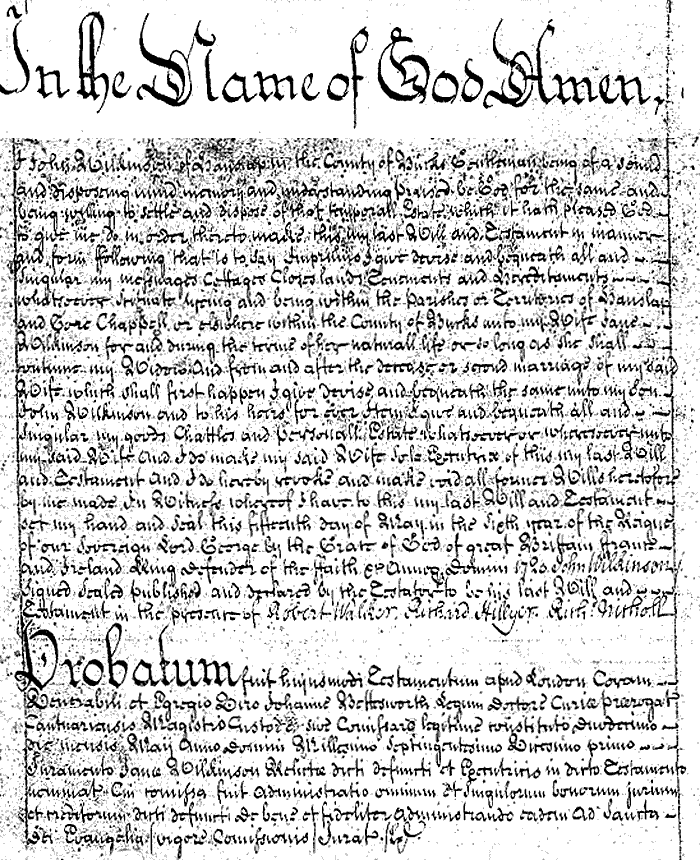 In the Name of God Amen,
I John Wilkinson of Hanslop in the County of Bucks Gentleman being of a sound
and disposing mind memory and understanding praised be God for the same and
being willing to settle and dispose of that temporall Estate which it hath pleased God
to give me do in order thereto make this my last Will and Testament in manner
and form following that is to say Imprimis I give devise and bequeath all and
singular my messuages Cottages Closes lands Tenements and Hereditaments
whatsoever scituate lyeing and being within the Parishes or Territories of Hanslap
and Gore Chappell or elsewhere within the County of Bucks unto my Wife Jane
Wilkinson for and during the terme of her naturall life or so long as she shall
continue my Widow And from and after the decease or second marriage of my said
Wife which shall first happen I give devise and bequeath the same unto my Son
John Wilkinson and to his heirs for ever Item I give and bequeath all and
singular my goods Chattles and personall Estate whatsoever or wheresoever unto
my said Wife And I do make my said Wife sole Executrix of this my last Will
and Testament And I do hereby revoke and make void all former Wills heretofore
by me made In Witness whereof I have to this my last Will and Testament
set my hand and seal this fifteenth day of May in the sixth year of the Reigne
of our Sovereign Lord George by the Grace of God of great Brittain France
and Ireland King defender of the Faith &c Annoq Domini 1720 John Wilkinson
Signed sealed published and declared by the Testator to be his last Will and
Testament in the presence of Robert Walker Richard Hillyer Rich: Nicholl
Probatum fuit hujusmodi Testamentum apud London Coram
Venerabili et Egregio Viro Johanne Bettesworth Legum Doctore Curiæ Prerogat
Cantuariensis Magistro Custode sive Comissario legitime constituto duodecimo
die mensis Maij Anno Domini Millesimo Septingentesimo Vicesimo primo
Juramento Janæ Wilkinson Relictæ dicti defuncti et Executricis in dicto Testamento
nominat Cui comissa fuit Administratio omnium et singulorum bonorum jurium
et creditorum dicti defuncti de bene et fideliter Administrando eadem Ad Sancta
Dei Evangelia (vigore Comissionis) Jurat